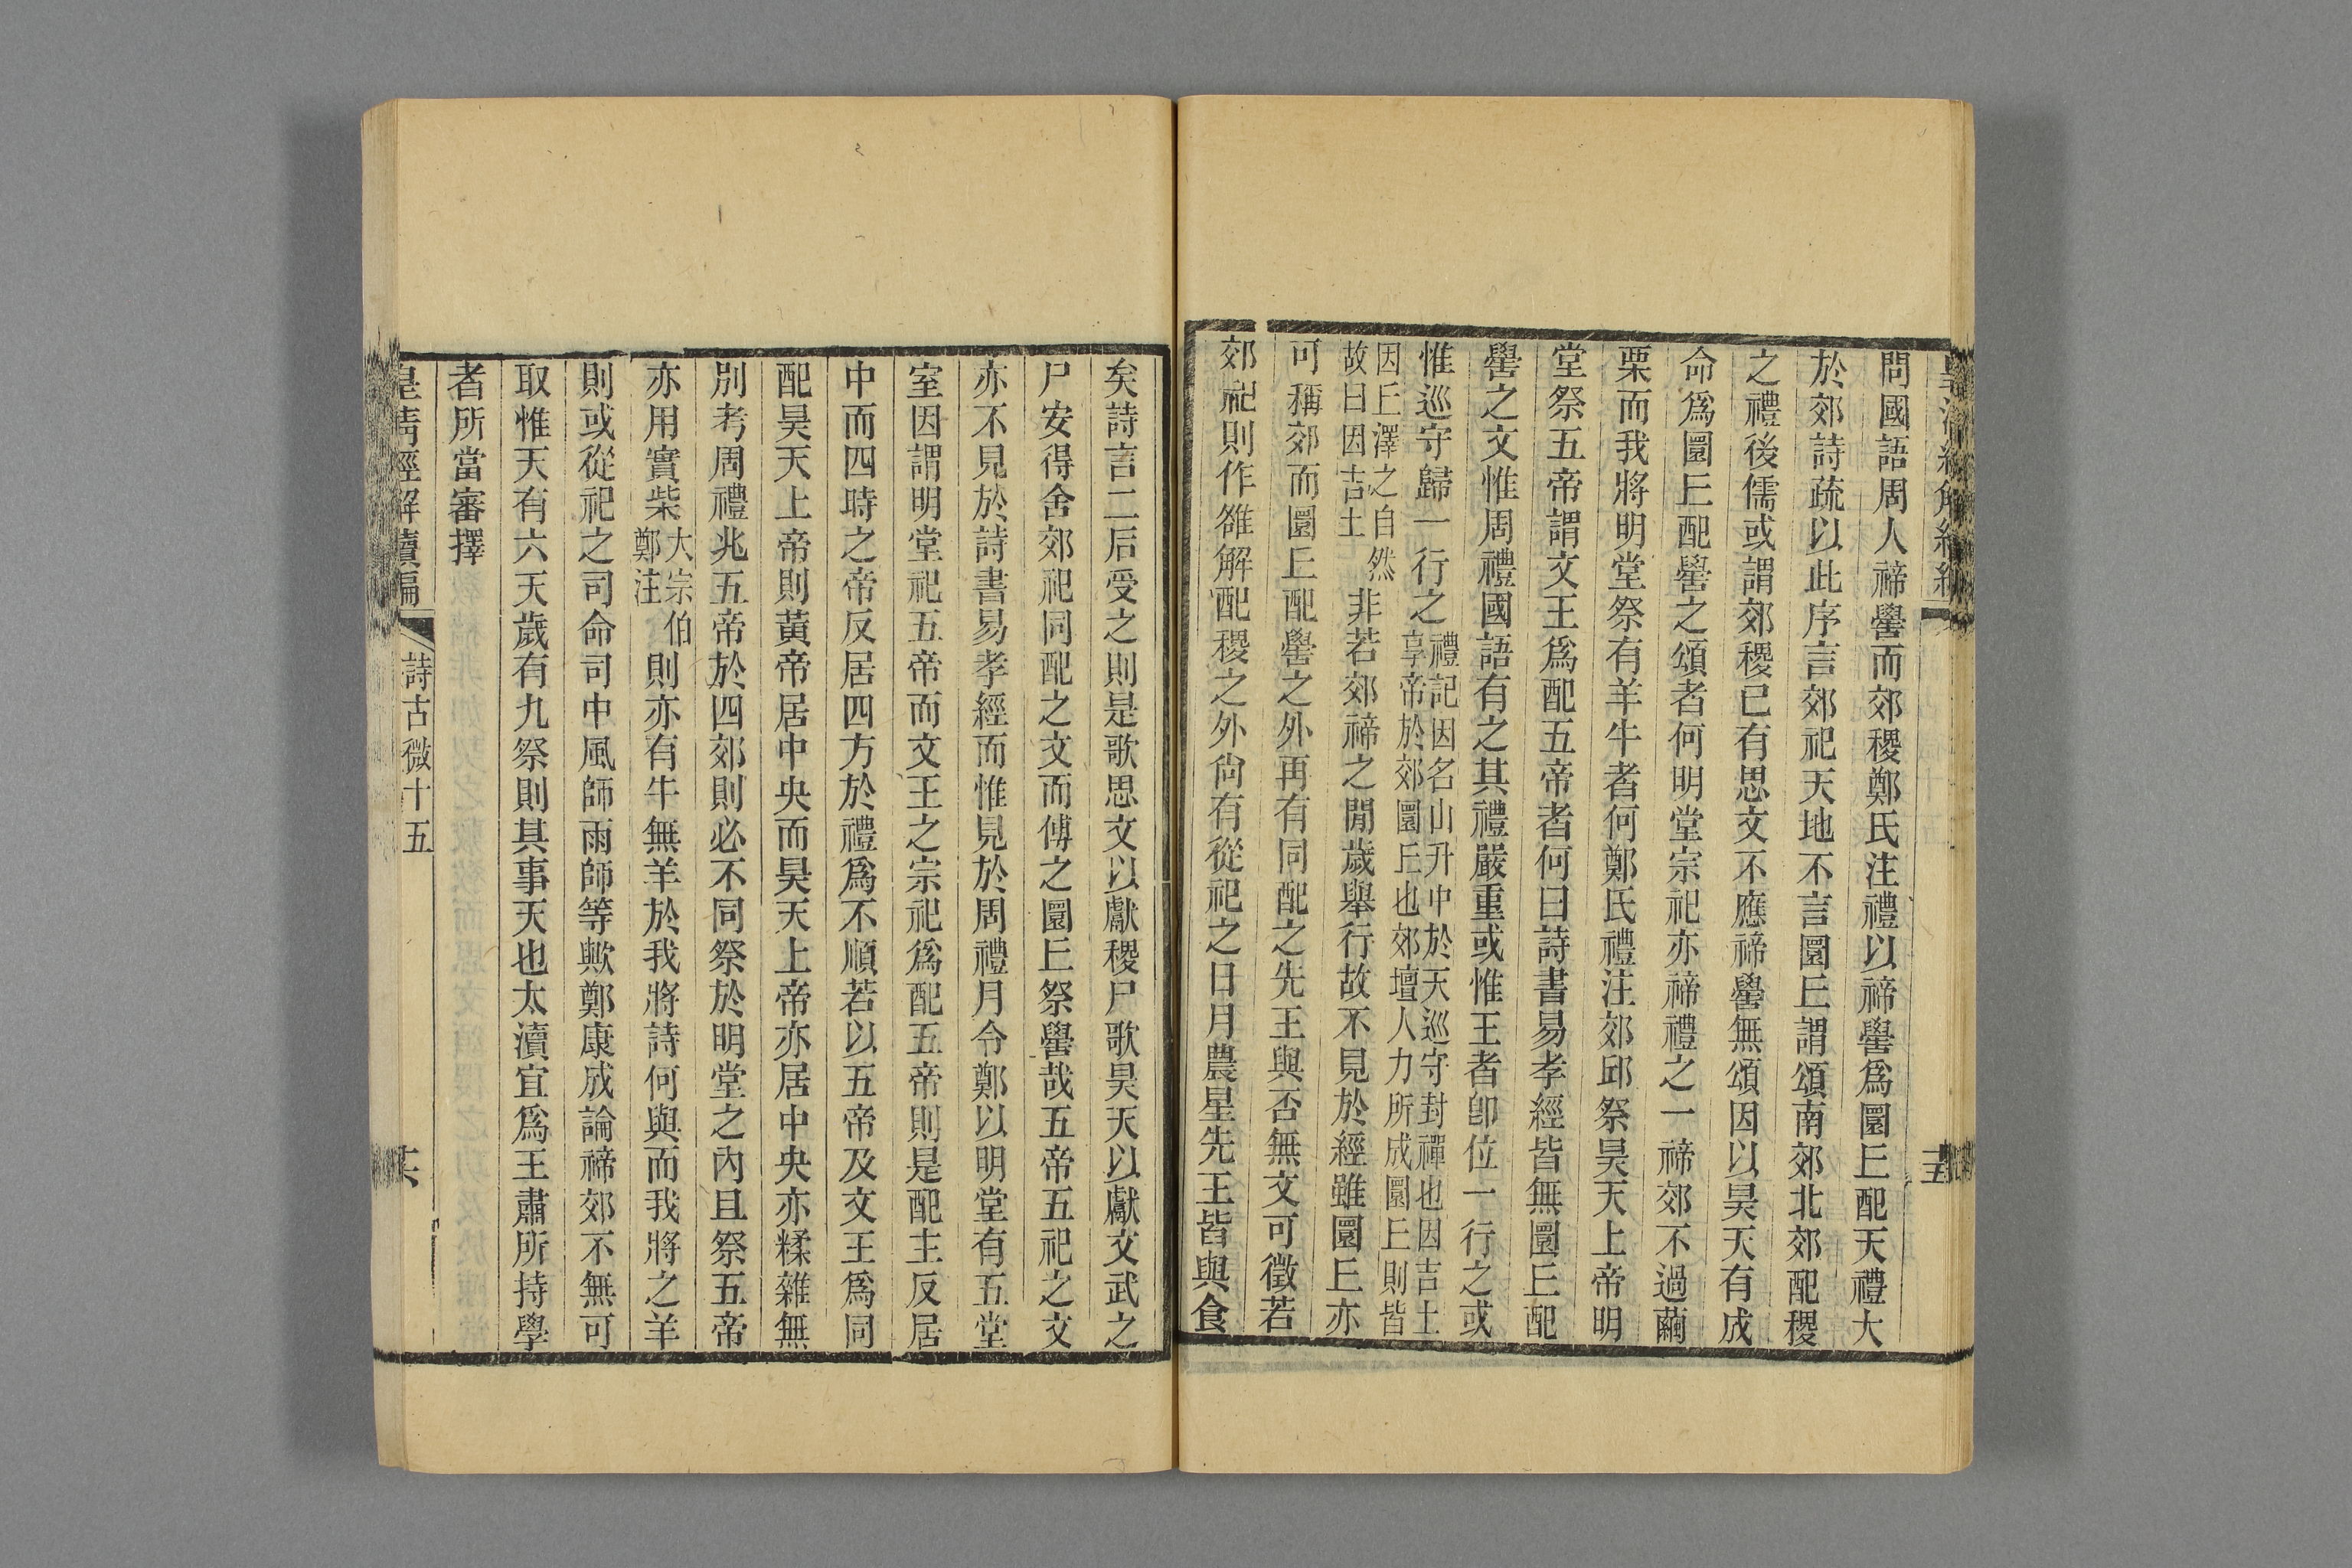 問國語周人禘嚳而郊稷鄭氏注禮以禘嚳爲圜丘配天禮大
於郊詩疏以此序言郊祀天地不言圜丘謂頌南郊北郊配稷
之禮後儒或謂郊稷已有思文不應禘嚳無頌因以昊天有成
命爲圜丘配嚳之頌者何明堂宗祀亦禘禮之一禘郊不過繭
栗而我將明堂祭有羊牛者何鄭氏禮注郊邱祭昊天上帝明
堂祭五帝謂文王爲配五帝者何曰詩書易孝經皆無圜丘配
嚳之文惟周禮國語有之其禮嚴重或惟王者卽位一行之或
惟巡守歸一行之禮記因名山升中於天巡守封禪也因吉土享帝於郊圜丘也郊壇人力所成圜丘則皆
因丘澤之自然故曰因吉土非若郊禘之閒歲舉行故不見於經雖圜丘亦
可稱郊而圜丘配嚳之外再有同配之先王與否無文可徵若
郊祀則作雒解配稷之外尙有從祀之日月農星先王皆與食
矣詩言二后受之則是歌思文以獻稷尸歌昊天以獻文武之
尸安得舍郊祀同配之文而傅之圜丘祭嚳哉五帝五祀之文
亦不見於詩書易孝經而惟見於周禮月令鄭以明堂有五堂
室因謂明堂祀五帝而文王之宗祀爲配五帝則是配主反居
中而四時之帝反居四方於禮爲不順若以五帝及文王爲同
配昊天上帝則黃帝居中央而昊天上帝亦居中央亦糅雜無
別考周禮兆五帝於四郊則必不同祭於明堂之內且祭五帝
亦用實柴大宗伯鄭注則亦有牛無羊於我將詩何與而我將之羊
則或從祀之司命司中風師雨師等歟鄭康成論禘郊不無可
取惟天有六天歲有九祭則其事天也太瀆宜爲王肅所持學
者所當審擇
皇清經解續編
詩古微十五